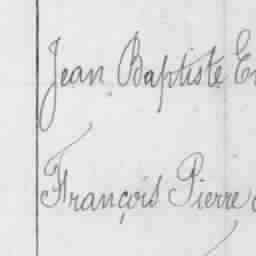 Jean Baptiste
François Pierre